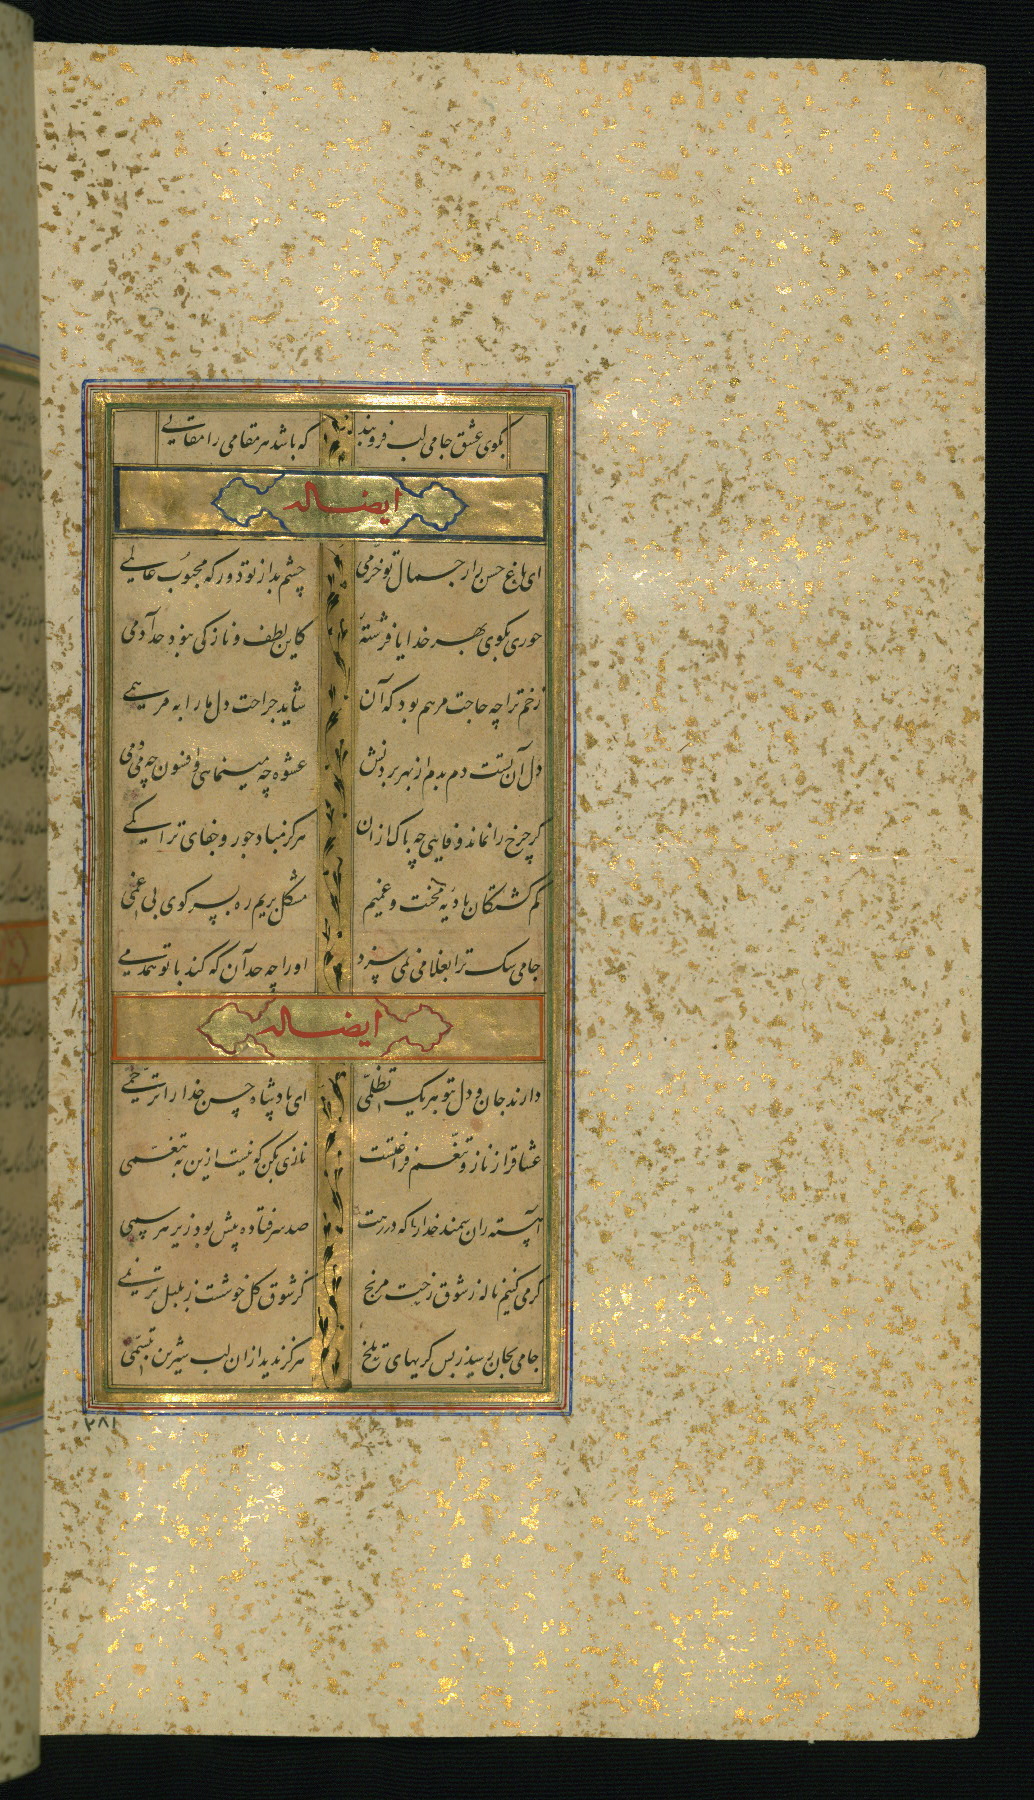 بکوی عشق جامی لب فروبند که باشد هر مقامی را مقالی
ایضا له
ای باغ حسن را ز جمال تو خرمی چشم بد از تو دور که محبوب عالمی
حوری بکوی بهر خدا یا فرشته کاین لطف و نازکی نبود حد آدمی
زخم ترا چه حاجت مرهم بود که آن شاید جراحت دل ما را به مرهمی
دل آن تست دم بدم از بهر بردنش عشوه چه مینمایی و افسون چه می دمی
کر چرخ را نماند وفایی چه باک از آن هرکز مباد جور و جفای ترا کمی
کم کشتکان بادیه محنت و غمیم مشکل بریم ره بسر کوی بی غمی
جامی سک ترا بغلامی نمی سزد او را چه حد آن که کند با تو همدمی
ایضا له
دارند جان و دل بتو هر یک تظلمی ای پادشاه حسن خدا را ترحمی
عشاق را ز ناز و تنعم فراغتست نازی بکن که نیست ازین به تنعمی
آهسته ران سمند خدا را که در رهت صد سر فتاده پیش بود زیر هر سمی
کر می کنیم ناله ز شوق رخت مرنج کز شوق کل خوشست ز بلبل ترنمی
جامی بجان رسید ز بس کریهای تلخ هرکز ندید از آن لب شیرین تبسمی
۲۸۱